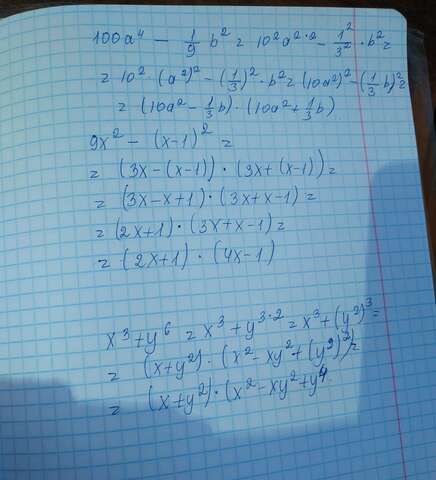 100a⁴ - 1/9 b² = 10²a²·² - 1²/3² · b² =
= 10² · (a²)² - (1/3)² · b² = (10a²)² - (1/3 b)² =
= (10a² - 1/3 b) · (10a² + 1/3 b)
9x² - (x-1)² =
= (3x - (x-1)) · (3x + (x-1)) =
= (3x - x + 1) · (3x + x - 1) =
= (2x+1) · (3x + x - 1) =
= (2x+1) · (4x-1)
x³ + y⁶ = x³ + y³·² = x³ + (y²)³ =
= (x+y²) · (x² - xy² + (y²)²) =
= (x+y²) · (x² - xy² + y⁴